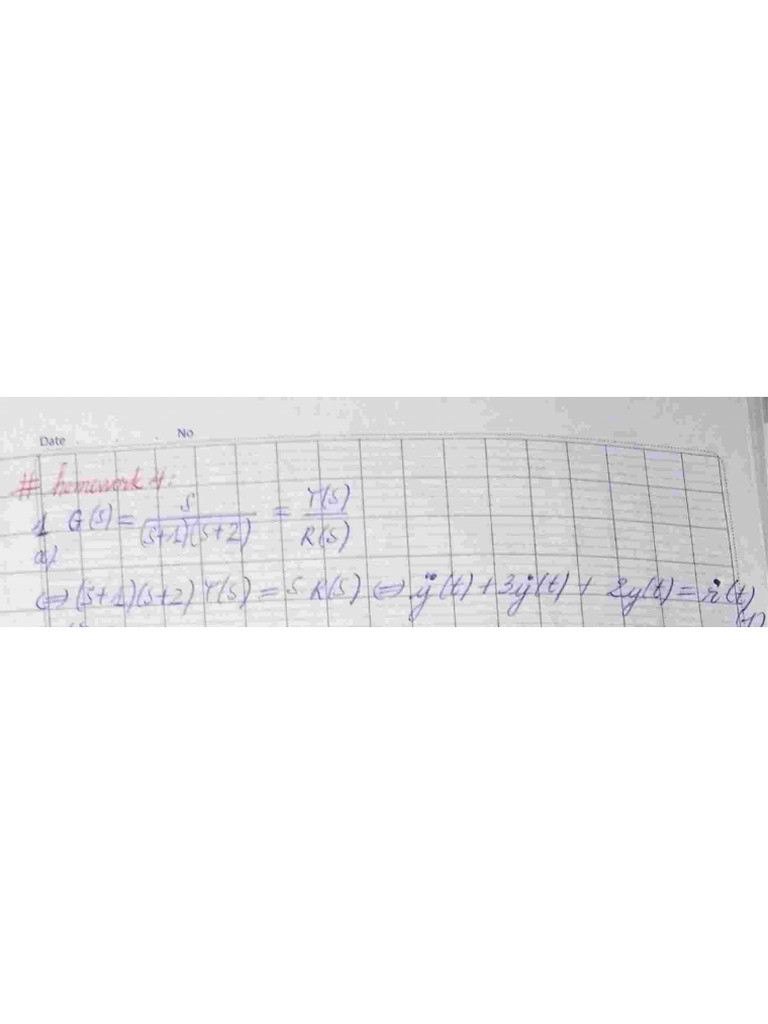 Date No
# homework 4:
1 G(s) = s / (s+1)(s+2) = Y(s) / R(s)
a)
⇔ (s+1)(s+2) Y(s) = s R(s) ⇔ ÿ(t) + 3ẏ(t) + 2y(t) = ṙ(t)
(1)